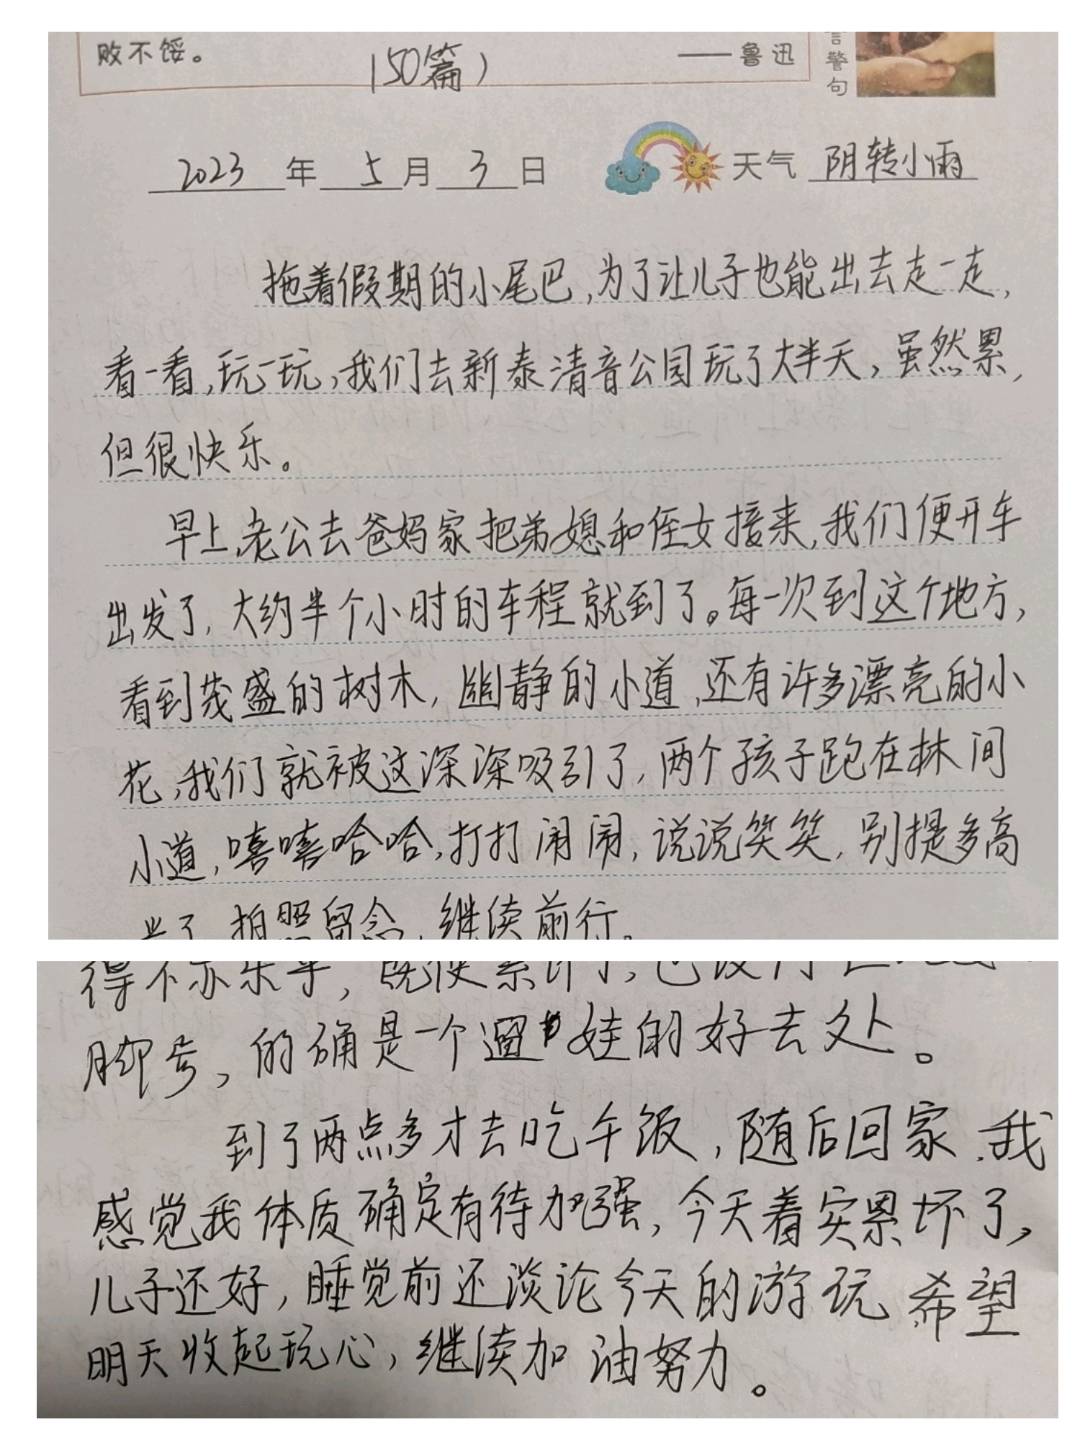 败不馁。
——鲁迅
言警句
(50篇)
2023年5月3日 天气 阴转小雨
拖着假期的小尾巴,为了让儿子也能出去走一走,
看一看,玩一玩,我们去新泰清音公园玩了大半天,虽然累,
但很快乐。
早上,老公去爸妈家把弟媳和侄女接来,我们便开车
出发了,大约半个小时的车程就到了。每一次到这个地方,
看到茂盛的树木,幽静的小道,还有许多漂亮的小
花,我们就被这深深吸引了,两个孩子跑在林间
小道,嘻嘻哈哈,打打闹闹,说说笑笑,别提多高
兴了,拍照留念,继续前行。
得不亦乐乎,既使累
脚亏,的确是一个遛娃的好去处。
到了两点多才去吃午饭,随后回家.我
感觉我体质确定有待加强,今天着实累坏了,
儿子还好,睡觉前还谈论今天的游玩 希望
明天收起玩心,继续加油努力。